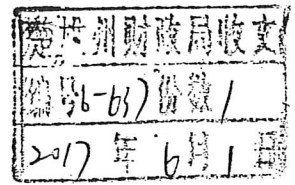 楚雄州财政局收文
编号6-637份数1
2017年6月1日